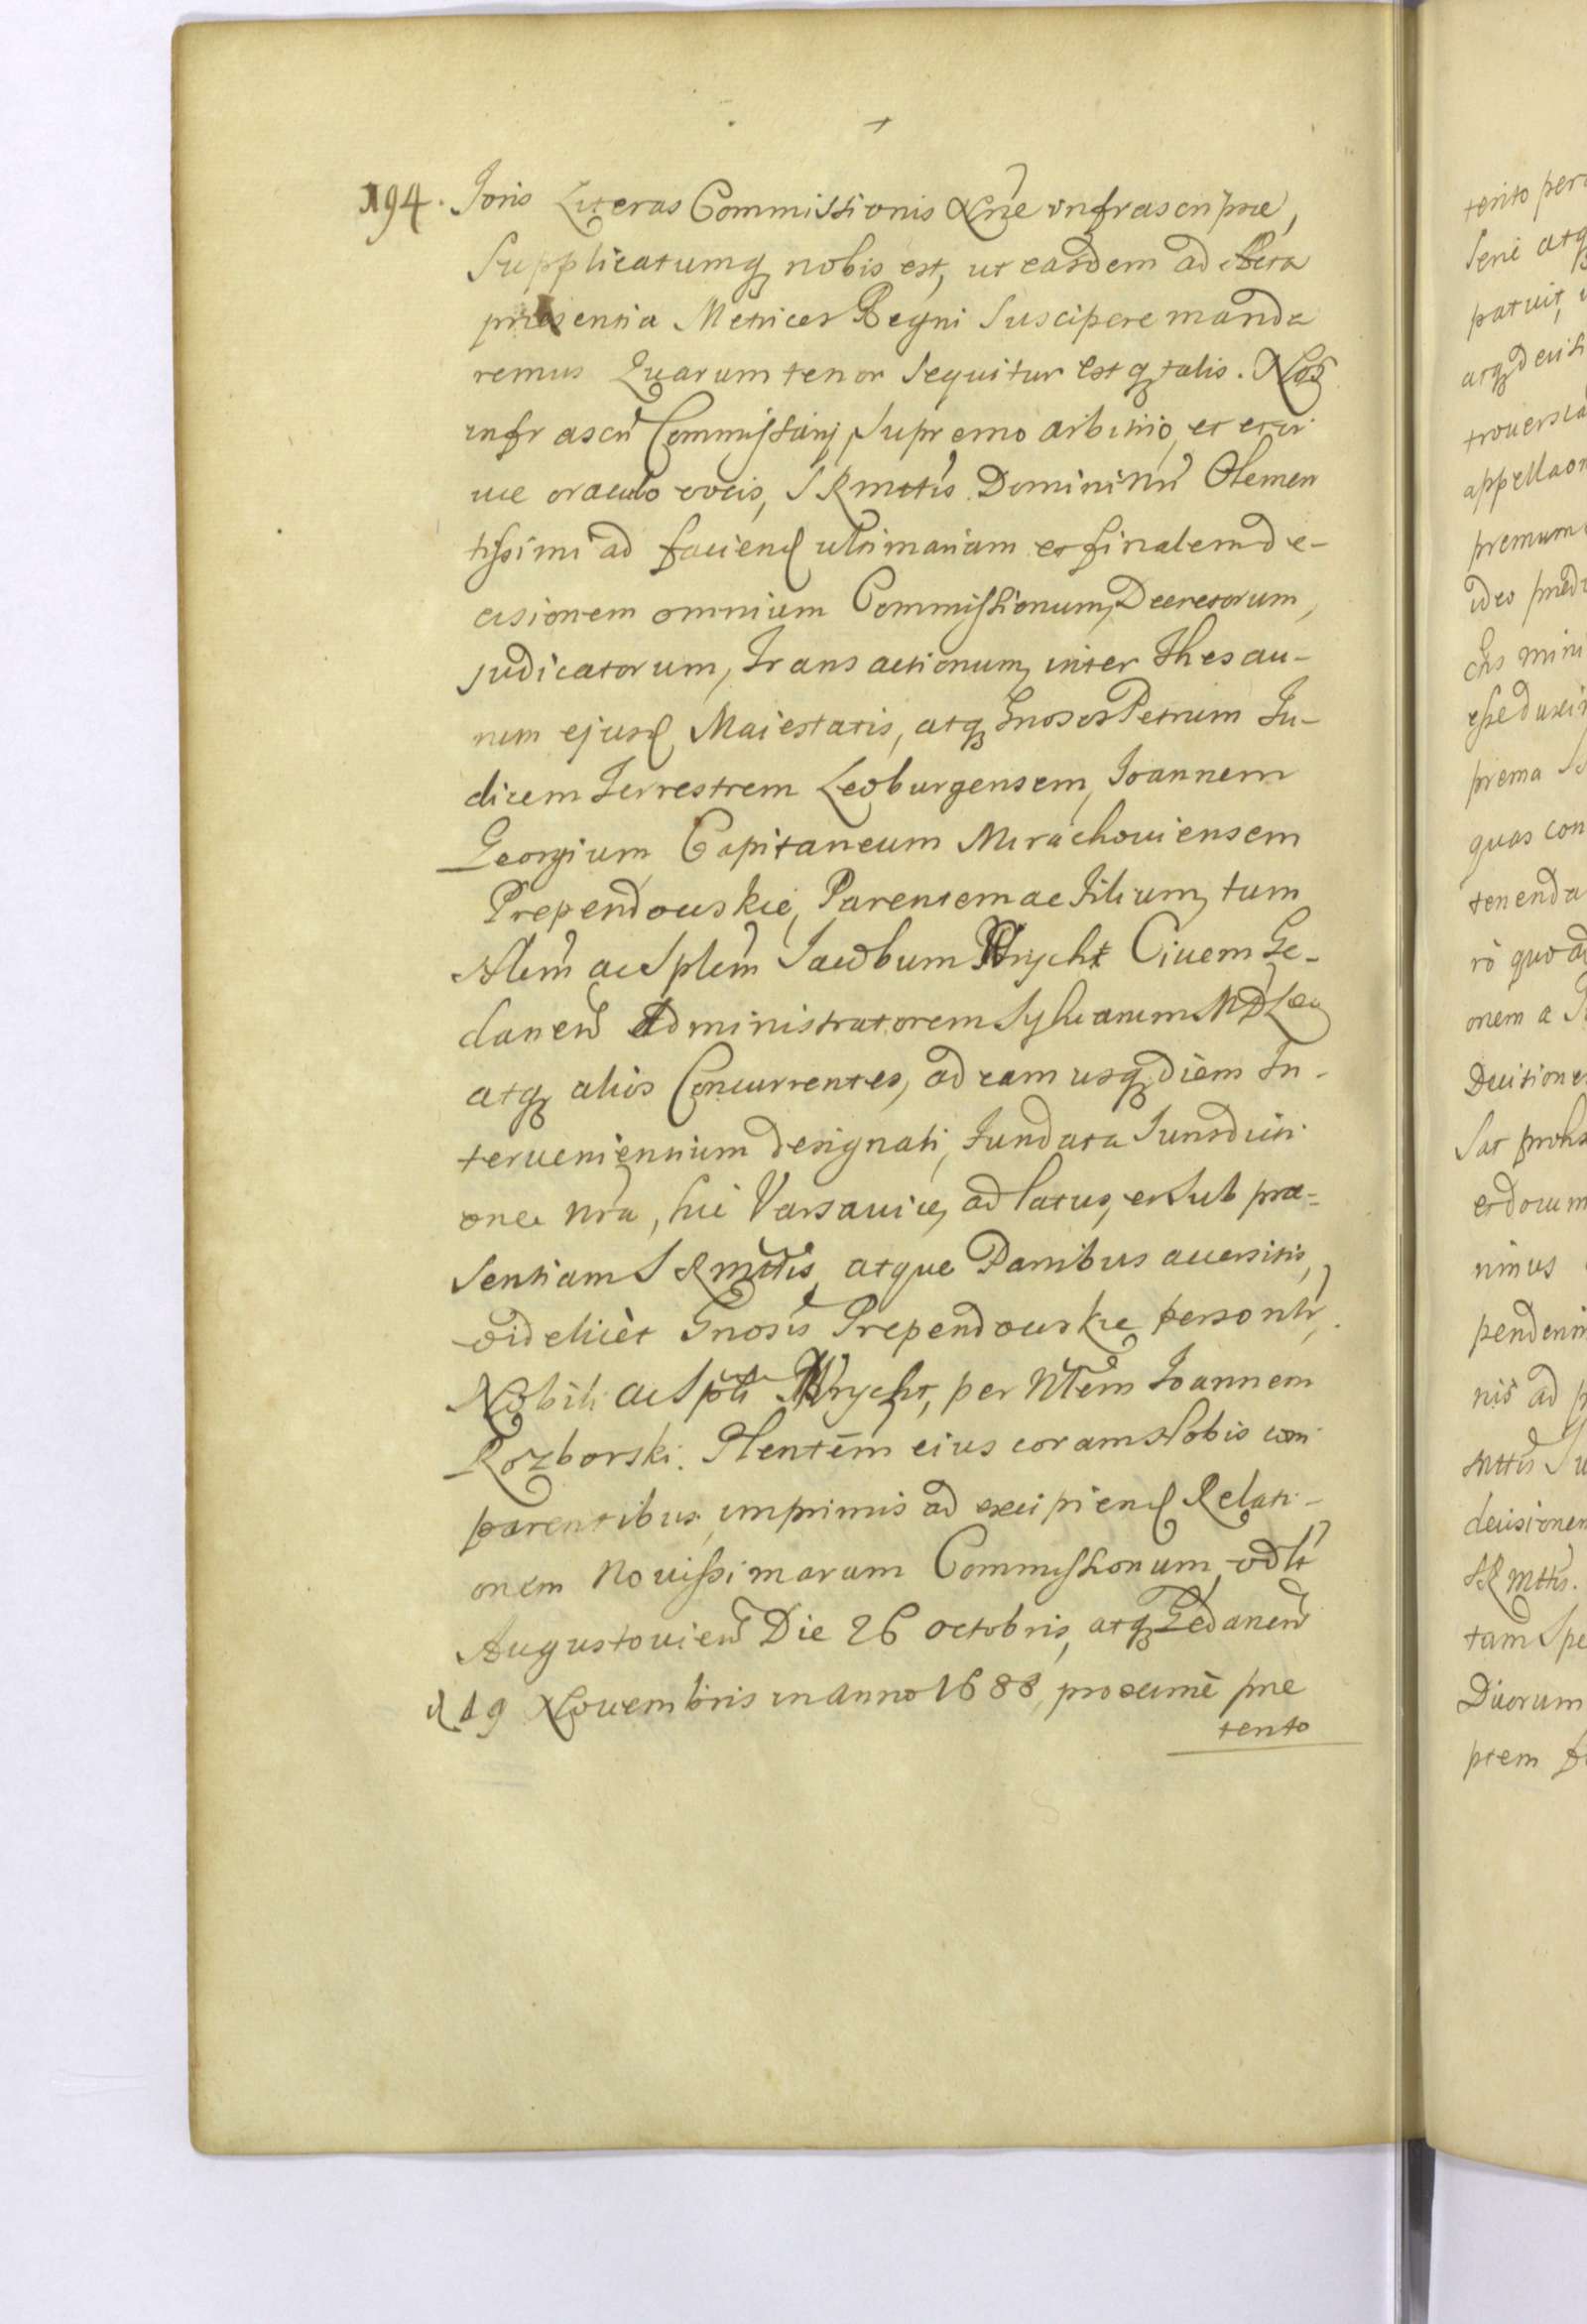 194. Joris Literas Commissionis Nrae infrascriptae,
Supplicatumq nobis est, ut easdem ad Acta
praesentia Metrices Regni Suscipere manda
remus Quarum tenor Sequitur estq talis. Nos
infrascri Commissarij Supremo arbitrio, et et vi
vae oraculo vocis, S R mttis Domini Nri Clemen
tissimi ad faciend ultimariam et finalem de-
cisionem omnium Commissionum, Decretorum,
judicatorum, Transactionum, inter Thesau-
rum ejusd Maiestatis, atq Gnosos Petrum Ju-
dicem Terrestrem Leoburgensem, Joannem
Georgium Capitaneum Mirachouiensem
Prependouskie, Parentem ac Filium, tum
Nlem ac Splem Jacobum Wrycht Ciuem Ge-
danen Administratorem Sylvarum M D L
atq alios Concurrentes, ad eam usq diem In-
terueniennium designati, Fundata Jurisdicti
one nra, hic Varsaviae, ad latus, et Sub prae-
sentiam S R mttis, atque Partibus auersitis,
videlicèt Gnosis Prependouskie personlr,
Nobili ac Spli Wrycht, per Nlem Joannem
Rozborski Plentem eius coram Nobis com
parentibus, imprimis ad excipiend Relati-
onem Nouissimarum Commissionum, vdlt
Augustouien Die 26 octobris, atq Gedanen
d 19 Novembris in Anno 1688, proximè prae
tento
tento per
Serie atq
patuit,
atq decis
trouersia
appellaon
premum
ideo praed
mini
esse duxi
prema
quas con
tenenda
rò quo ad
onem a
Decisione
Sat prohs
et dorum
nimus
pendenn
nis ad p
mttis Su
decisionem
S R mttis.
tam Spe
Diuorum
ptem